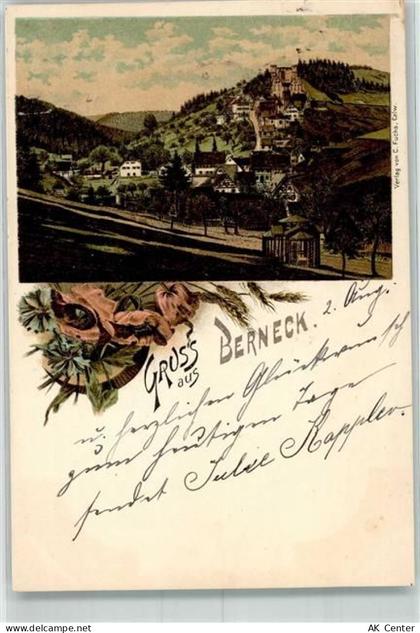 Verlag von C. Fuchs, Calw.
GRUSS
aus
BERNECK. 2. Aug.
u. herzlichen Glückwunsch
zum heutigen Tage
sendet Julie Kappler.
AK Center